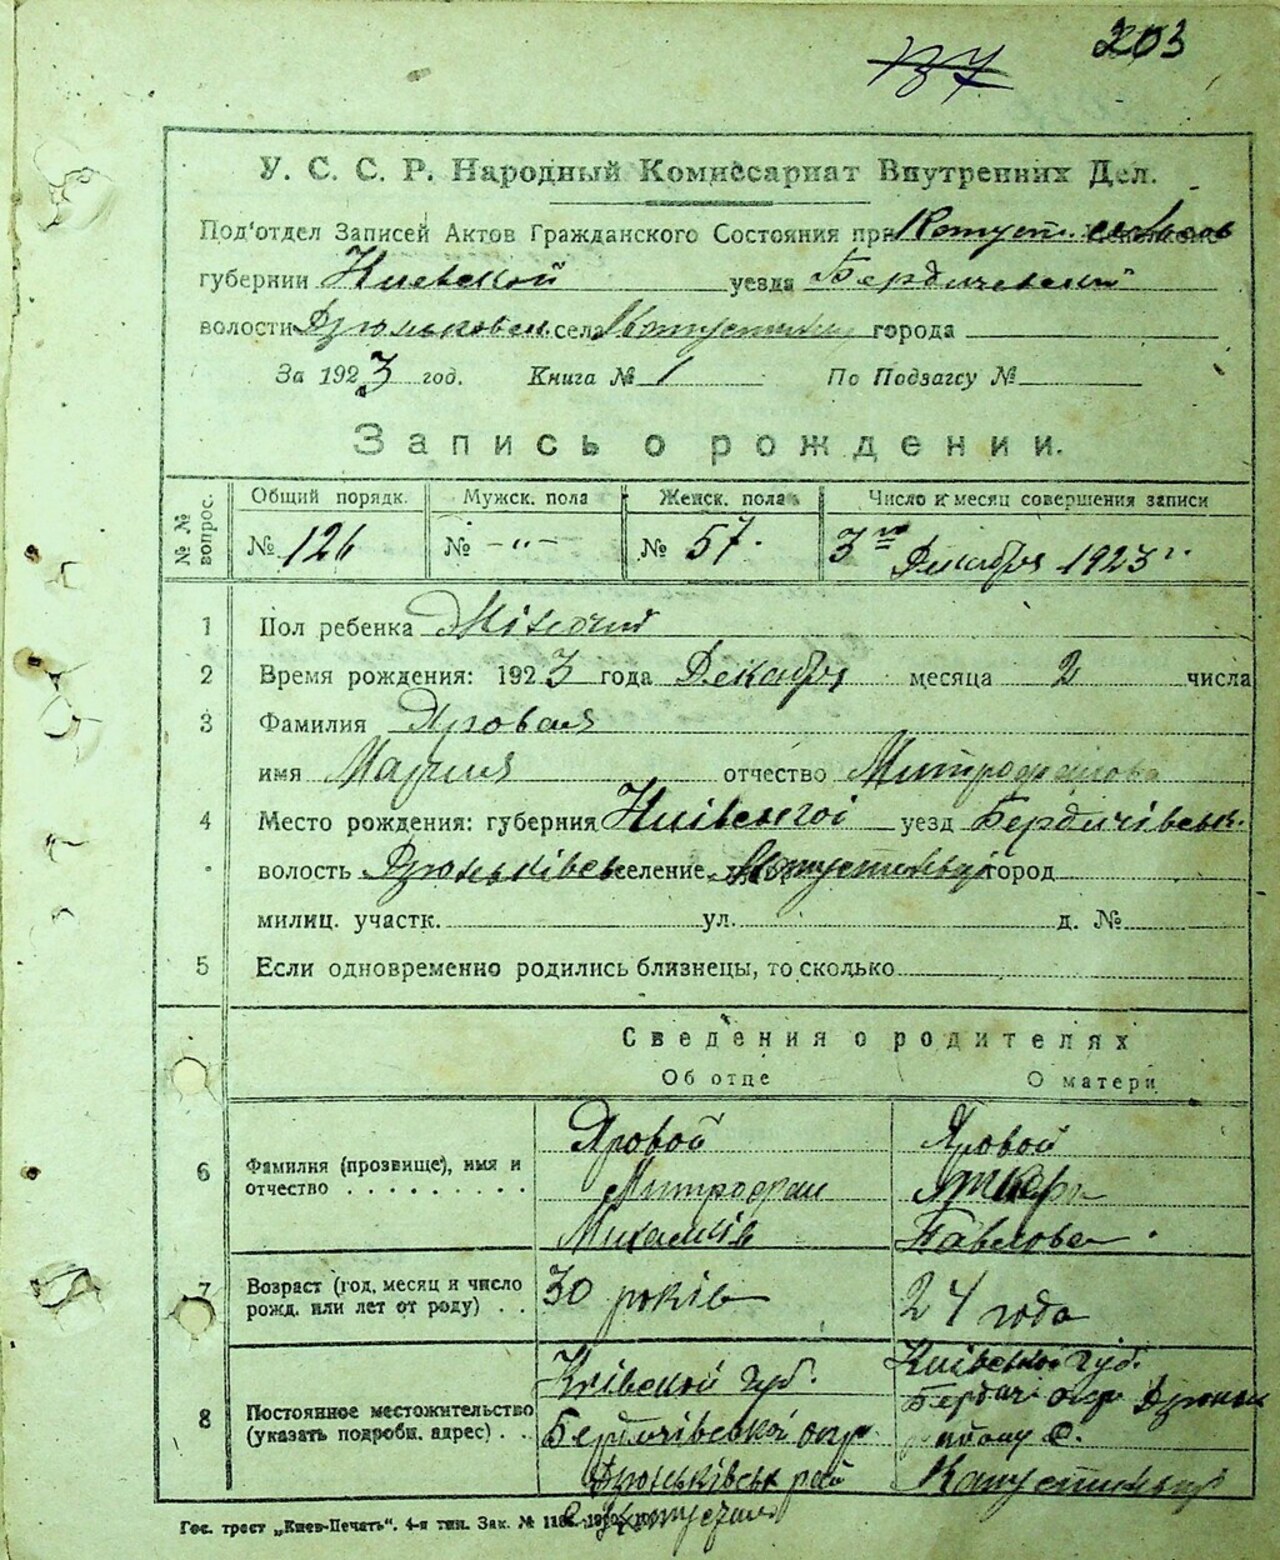 203
137
У. С. С. Р. Народный Комиссариат Внутренних Дел.
Под'отдел Записей Актов Гражданского Состояния при Капуст.
губернии Киевской уезда Бердичевский
волости Дзюньковск. села Капустинцы города
За 1923 год. Книга № 1 По Подзагсу №
Запись о рождении.
№ № вопрос. Общий порядк. Мужск. пола Женск. пола Число и месяц совершения записи
№ 126 № -"- № 57. 3го Декабря 1923 г.
1 Пол ребенка Жіночий
2 Время рождения: 1923 года Декабря месяца 2 числа
3 Фамилия Яровая
имя Мария отчество Митрофанова
4 Место рождения: губерния Київської уезд Бердичівськ.
волость Дзюньківськ селение Капустиньці город
милиц. участк. ул. д. №
5 Если одновременно родились близнецы, то сколько
Сведения о родителях
Об отце О матери
6 Фамилия (прозвище), имя и отчество . . . . . . . . .
Яровой Яровой
Митрофан
Михайлів Павлова.
7 Возраст (год, месяц и число рожд. или лет от роду) . .
30 років 24 года
8 Постоянное местожительство (указать подробн. адрес) . .
Київской губ. Київської губ.
Бердичівської окр. Бердичі окр Дзюньк
Дзюньківськ рай с.
Капустинці Капустиньці
Гос. трест „Киев-Печать". 4-я тип. Зак. №